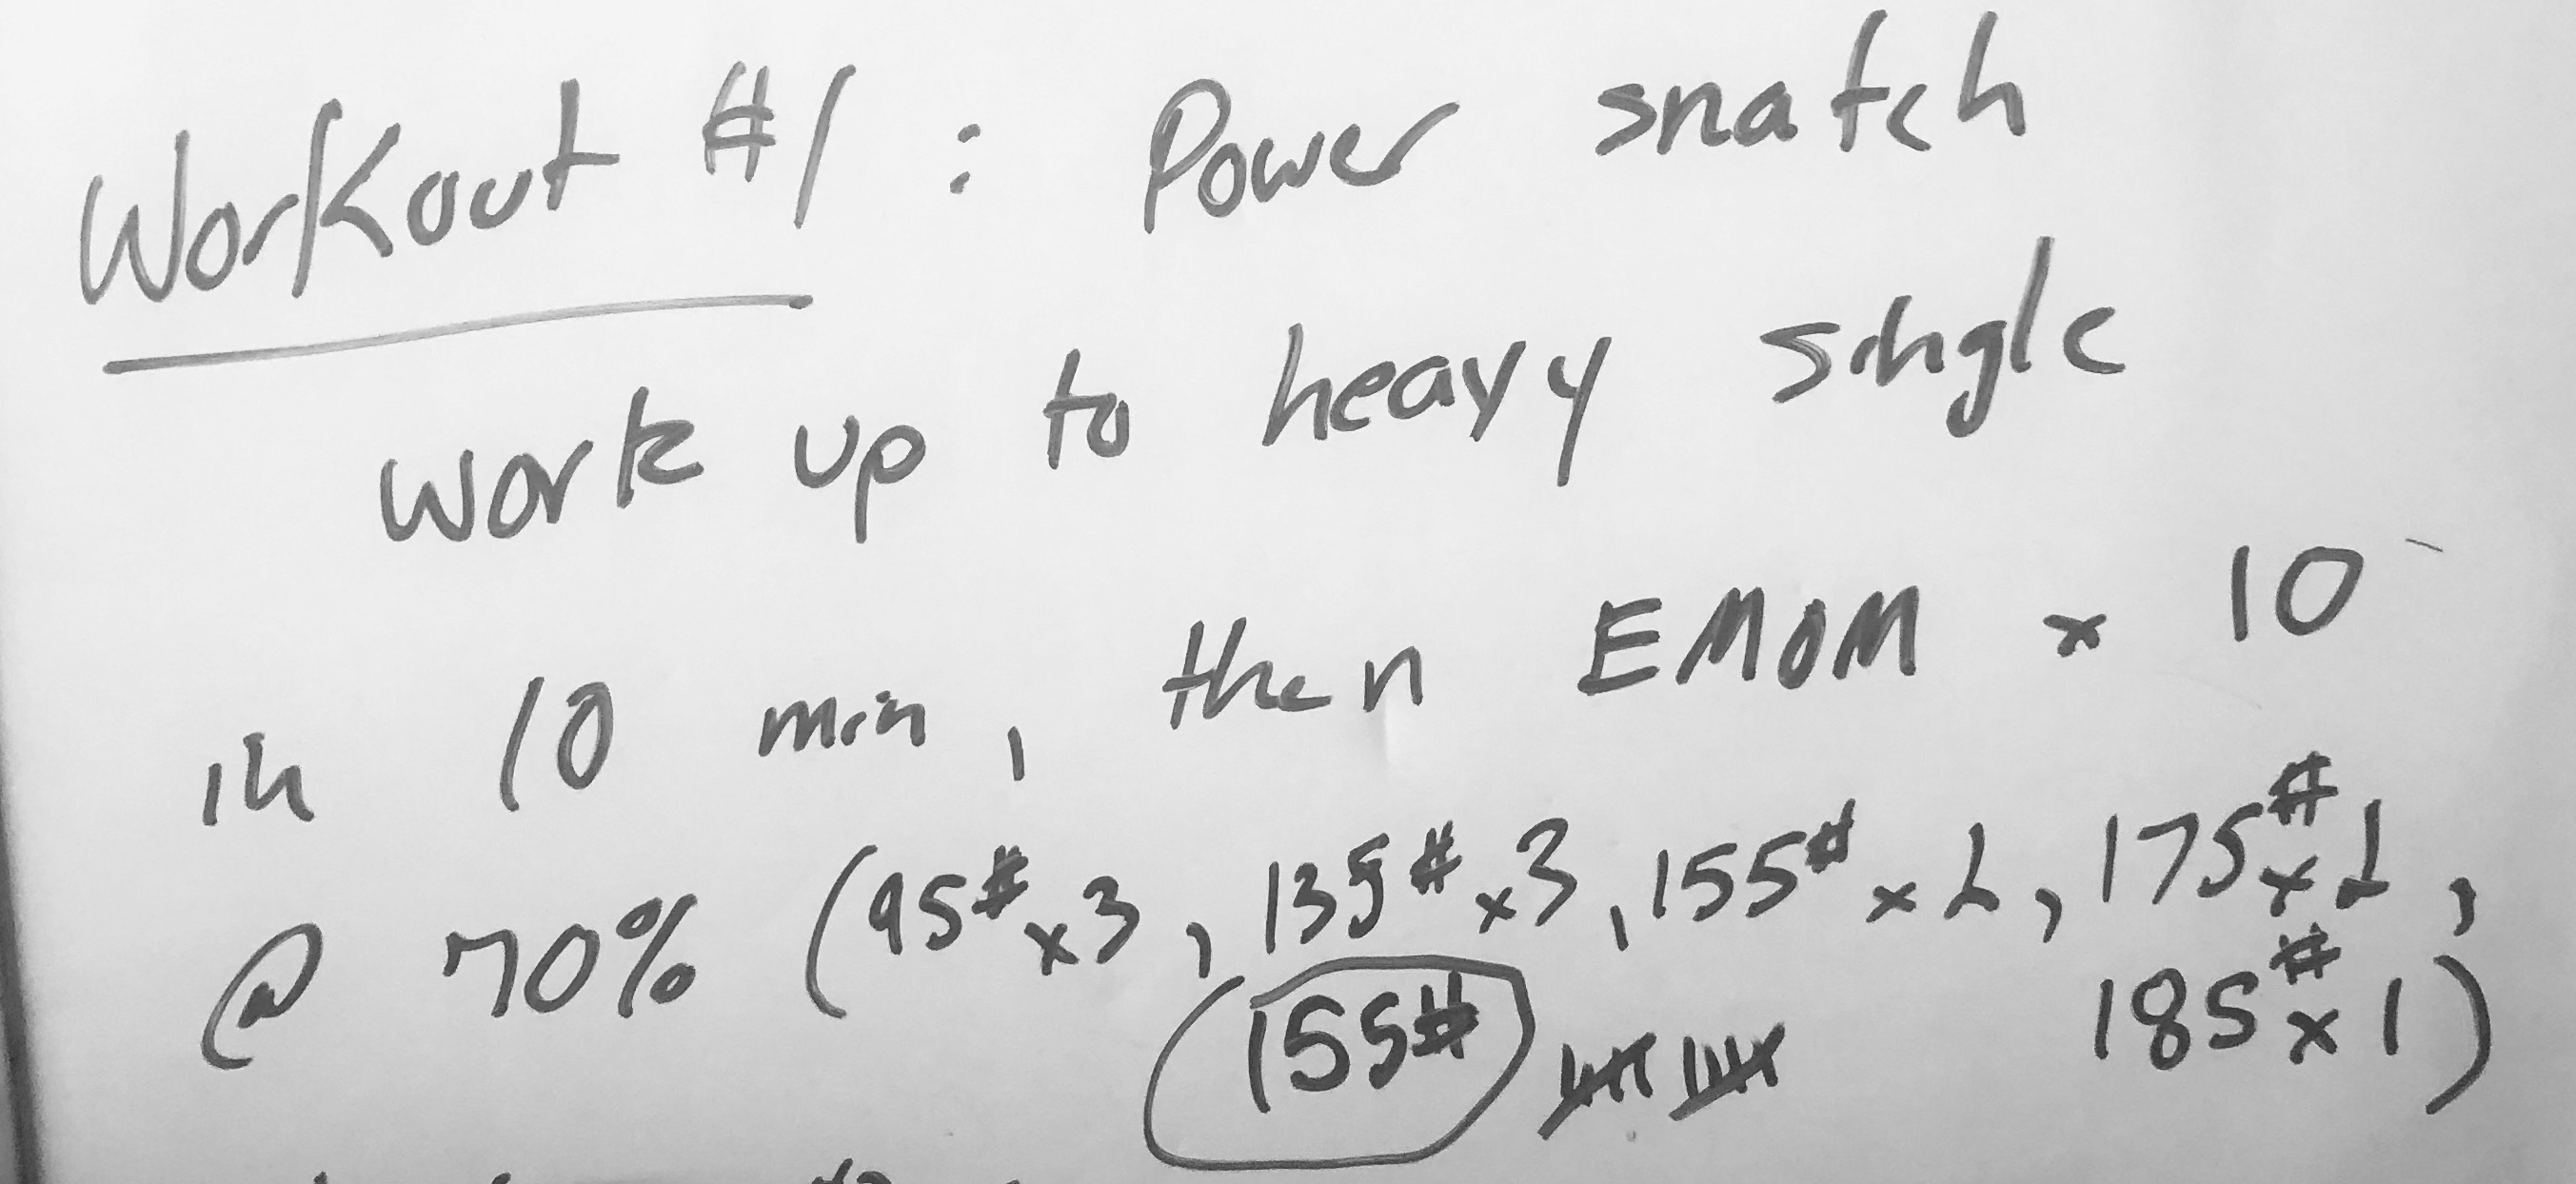 Workout #1 : Power snatch
work up to heavy single
in 10 min, then EMOM x 10
@ 70% (95# x3, 135# x3, 155# x 2, 175# x 2,
185# x 1)
155#